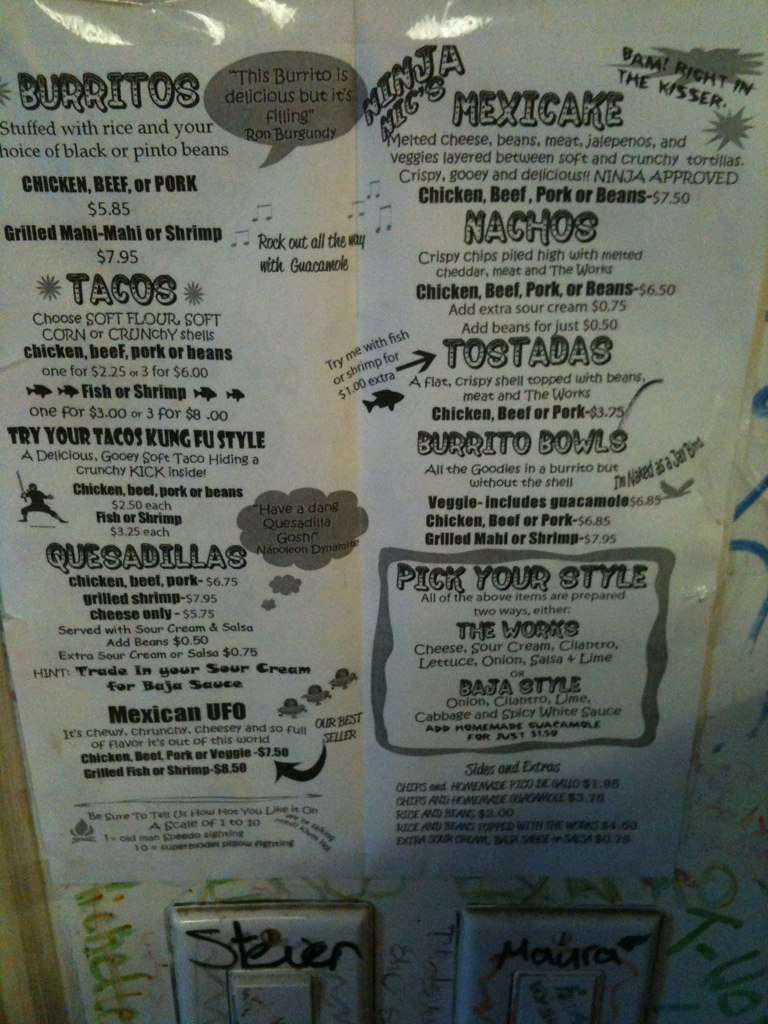 BURRITOS
"This Burrito is
delicious but it's
filling"
Ron Burgundy
Stuffed with rice and your
hoice of black or pinto beans
CHICKEN, BEEF, or PORK
$5.85
Grilled Mahi-Mahi or Shrimp
$7.95
Rock out all the way
with Guacamole
TACOS
Choose SOFT FLOUR, SOFT
CORN or CRUNCHY shells
chicken, beef, pork or beans
one for $2.25 or 3 for $6.00
Fish or Shrimp
one for $3.00 or 3 for $8.00
TRY YOUR TACOS KUNG FU STYLE
A Delicious, Gooey Soft Taco Hiding a
crunchy KICK inside!
Chicken, beef, pork or beans
$2.50 each
Fish or Shrimp
$3.25 each
"Have a dang
Quesadilla
Gosh!"
Napoleon Dynamite
QUESADILLAS
chicken, beef, pork- $6.75
grilled shrimp-$7.95
cheese only - $5.75
Served with Sour Cream & Salsa
Add Beans $0.50
Extra Sour Cream or Salsa $0.75
HINT: Trade In your Sour Cream
for Baja Sauce
Mexican UFO
It's chewy, chrunchy, cheesey and so full
of flavor it's out of this world
Chicken, Beef, Pork or Veggie -$7.50
Grilled Fish or Shrimp-$8.50
OUR BEST
SELLER
Be Sure To Tell Us How Hot You Like it On
A Scale of 1 to 10
1 = old man Speedo sighting
10 = supermodel pillow fighting
NINJA
NIC'S
MEXICAKE
BAM! RIGHT IN
THE KISSER.
Melted cheese, beans, meat, jalepenos, and
veggies layered between soft and crunchy tortillas.
Crispy, gooey and delicious!! NINJA APPROVED
Chicken, Beef, Pork or Beans-$7.50
NACHOS
Crispy chips piled high with melted
cheddar, meat and The Works
Chicken, Beef, Pork, or Beans-$6.50
Add extra sour cream $0.75
Add beans for just $0.50
Try me with fish
or shrimp for
$1.00 extra
TOSTADAS
A flat, crispy shell topped with beans,
meat and The Works
Chicken, Beef or Pork-$3.75
BURRITO BOWLS
All the Goodies in a burrito but
without the shell
I'm Naked as a Jay Bird
Veggie- includes guacamole$6.85
Chicken, Beef or Pork-$6.85
Grilled Mahi or Shrimp-$7.95
PICK YOUR STYLE
All of the above items are prepared
two ways, either:
THE WORKS
Cheese, Sour Cream, Cilantro,
Lettuce, Onion, Salsa + Lime
OR
BAJA STYLE
Onion, Cilantro, Lime,
Cabbage and Spicy White Sauce
ADD HOMEMADE GUACAMOLE
FOR JUST $1.50
Sides and Extras
CHIPS and HOMEMADE PICO DE GALLO $1.95
CHIPS AND HOMEMADE GUACAMOLE $3.75
RICE AND BEANS $2.00
RICE AND BEANS TOPPED WITH THE WORKS $4.50
EXTRA SOUR CREAM, BAJA SAUCE or SALSA $0.75
Steven
Maura